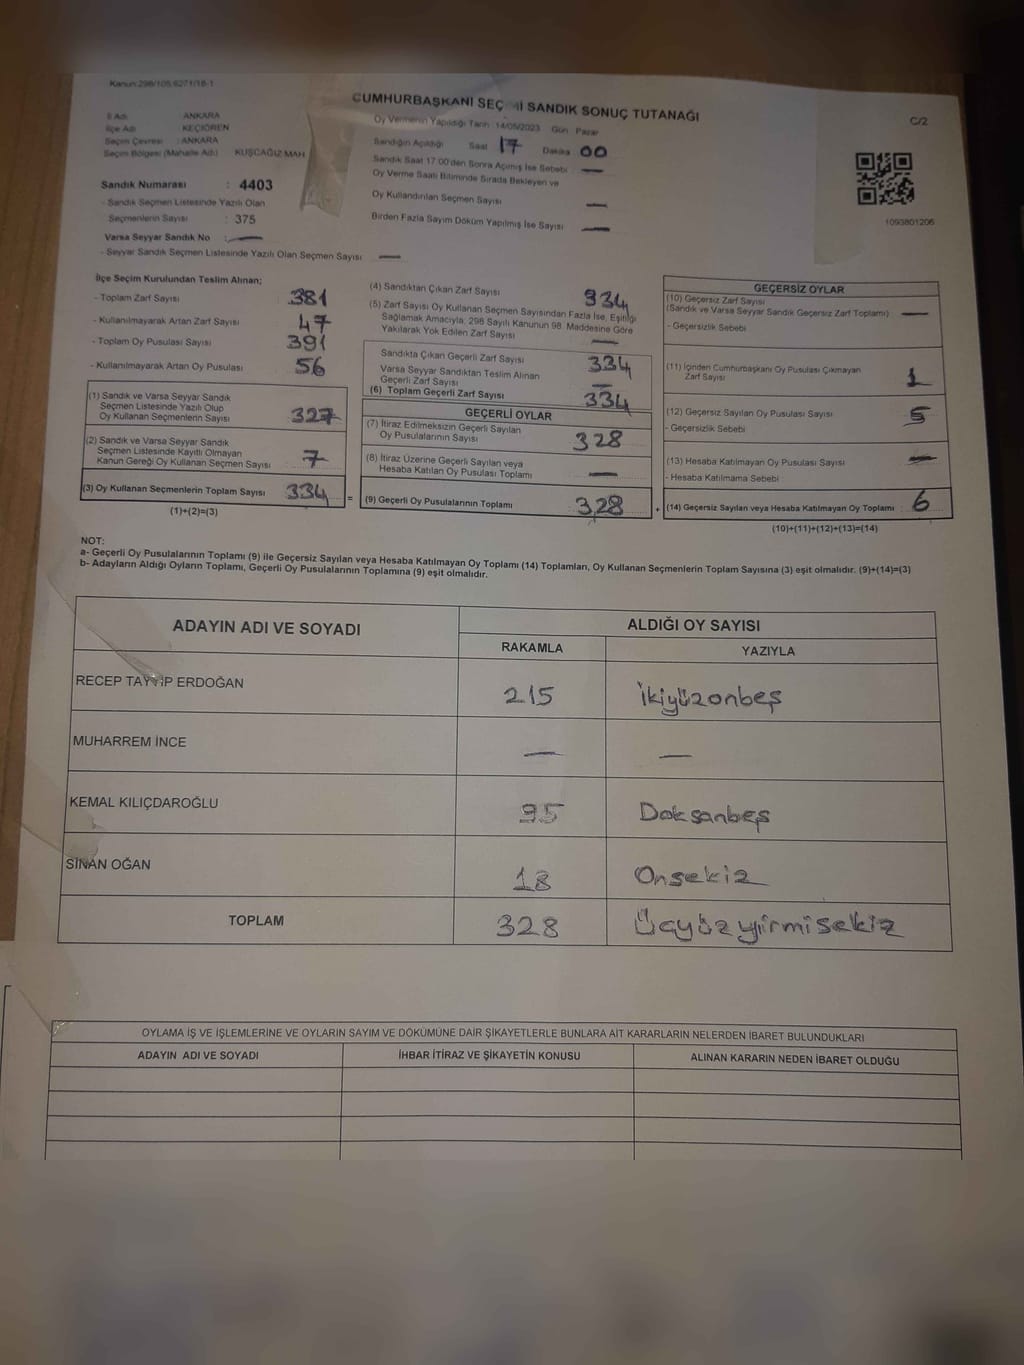 Kanun:298/105,6271/18-1
CUMHURBAŞKANI SEÇ İ SANDIK SONUÇ TUTANAĞI
C/2
İl Adı : ANKARA
İlçe Adı : KEÇİÖREN
Seçim Çevresi : ANKARA
Seçim Bölgesi (Mahalle Adı) : KUŞCAĞIZ MAH
Sandık Numarası : 4403
- Sandık Seçmen Listesinde Yazılı Olan
Seçmenlerin Sayısı : 375
Varsa Seyyar Sandık No : —
- Seyyar Sandık Seçmen Listesinde Yazılı Olan Seçmen Sayısı —
Oy Vermenin Yapıldığı Tarih : 14/05/2023 Gün : Pazar
Sandığın Açıldığı Saat 17 Dakika 00
Sandık Saat 17.00'den Sonra Açımış İse Sebebi : —
Oy Verme Saati Bitiminde Sırada Bekleyen ve
Oy Kullandırılan Seçmen Sayısı —
Birden Fazla Sayım Döküm Yapılmış İse Sayısı —
1093801206
İlçe Seçim Kurulundan Teslim Alınan;
- Toplam Zarf Sayısı 381
- Kullanılmayarak Artan Zarf Sayısı 47
- Toplam Oy Pusulası Sayısı 391
- Kullanılmayarak Artan Oy Pusulası 56
(1) Sandık ve Varsa Seyyar Sandık
Seçmen Listesinde Yazılı Olup
Oy Kullanan Seçmenlerin Sayısı 327
(2) Sandık ve Varsa Seyyar Sandık
Seçmen Listesinde Kayıtlı Olmayan
Kanun Gereği Oy Kullanan Seçmen Sayısı 7
(3) Oy Kullanan Seçmenlerin Toplam Sayısı 334
(1)+(2)=(3)
=
(4) Sandıktan Çıkan Zarf Sayısı 334
(5) Zarf Sayısı Oy Kullanan Seçmen Sayısından Fazla İse, Eşitliği
Sağlamak Amacıyla, 298 Sayılı Kanunun 98. Maddesine Göre
Yakılarak Yok Edilen Zarf Sayısı —
Sandıkta Çıkan Geçerli Zarf Sayısı 334
Varsa Seyyar Sandıktan Teslim Alınan
Geçerli Zarf Sayısı —
(6) Toplam Geçerli Zarf Sayısı 334
GEÇERLİ OYLAR
(7) İtiraz Edilmeksizin Geçerli Sayılan
Oy Pusulalarının Sayısı 328
(8) İtiraz Üzerine Geçerli Sayılan veya
Hesaba Katılan Oy Pusulası Toplamı —
(9) Geçerli Oy Pusulalarının Toplamı 328
+
GEÇERSİZ OYLAR
(10) Geçersiz Zarf Sayısı
(Sandık ve Varsa Seyyar Sandık Geçersiz Zarf Toplamı) —
- Geçersizlik Sebebi
(11) İçinden Cumhurbaşkanı Oy Pusulası Çıkmayan
Zarf Sayısı 1
(12) Geçersiz Sayılan Oy Pusulası Sayısı 5
- Geçersizlik Sebebi
(13) Hesaba Katılmayan Oy Pusulası Sayısı —
- Hesaba Katılmama Sebebi
(14) Geçersiz Sayılan veya Hesaba Katılmayan Oy Toplamı : 6
(10)+(11)+(12)+(13)=(14)
NOT:
a- Geçerli Oy Pusulalarının Toplamı (9) ile Geçersiz Sayılan veya Hesaba Katılmayan Oy Toplamı (14) Toplamları, Oy Kullanan Seçmenlerin Toplam Sayısına (3) eşit olmalıdır. (9)+(14)=(3)
b- Adayların Aldığı Oyların Toplamı, Geçerli Oy Pusulalarının Toplamına (9) eşit olmalıdır.
ADAYIN ADI VE SOYADI
ALDIĞI OY SAYISI
RAKAMLA YAZIYLA
RECEP TAYYİP ERDOĞAN 215 İkiyüzonbeş
MUHARREM İNCE — —
KEMAL KILIÇDAROĞLU 95 Doksanbeş
SİNAN OĞAN 18 Onsekiz
TOPLAM 328 Üçyüzyirmisekiz
OYLAMA İŞ VE İŞLEMLERİNE VE OYLARIN SAYIM VE DÖKÜMÜNE DAİR ŞİKAYETLERLE BUNLARA AİT KARARLARIN NELERDEN İBARET BULUNDUKLARI
ADAYIN ADI VE SOYADI İHBAR İTİRAZ VE ŞİKAYETİN KONUSU ALINAN KARARIN NEDEN İBARET OLDUĞU